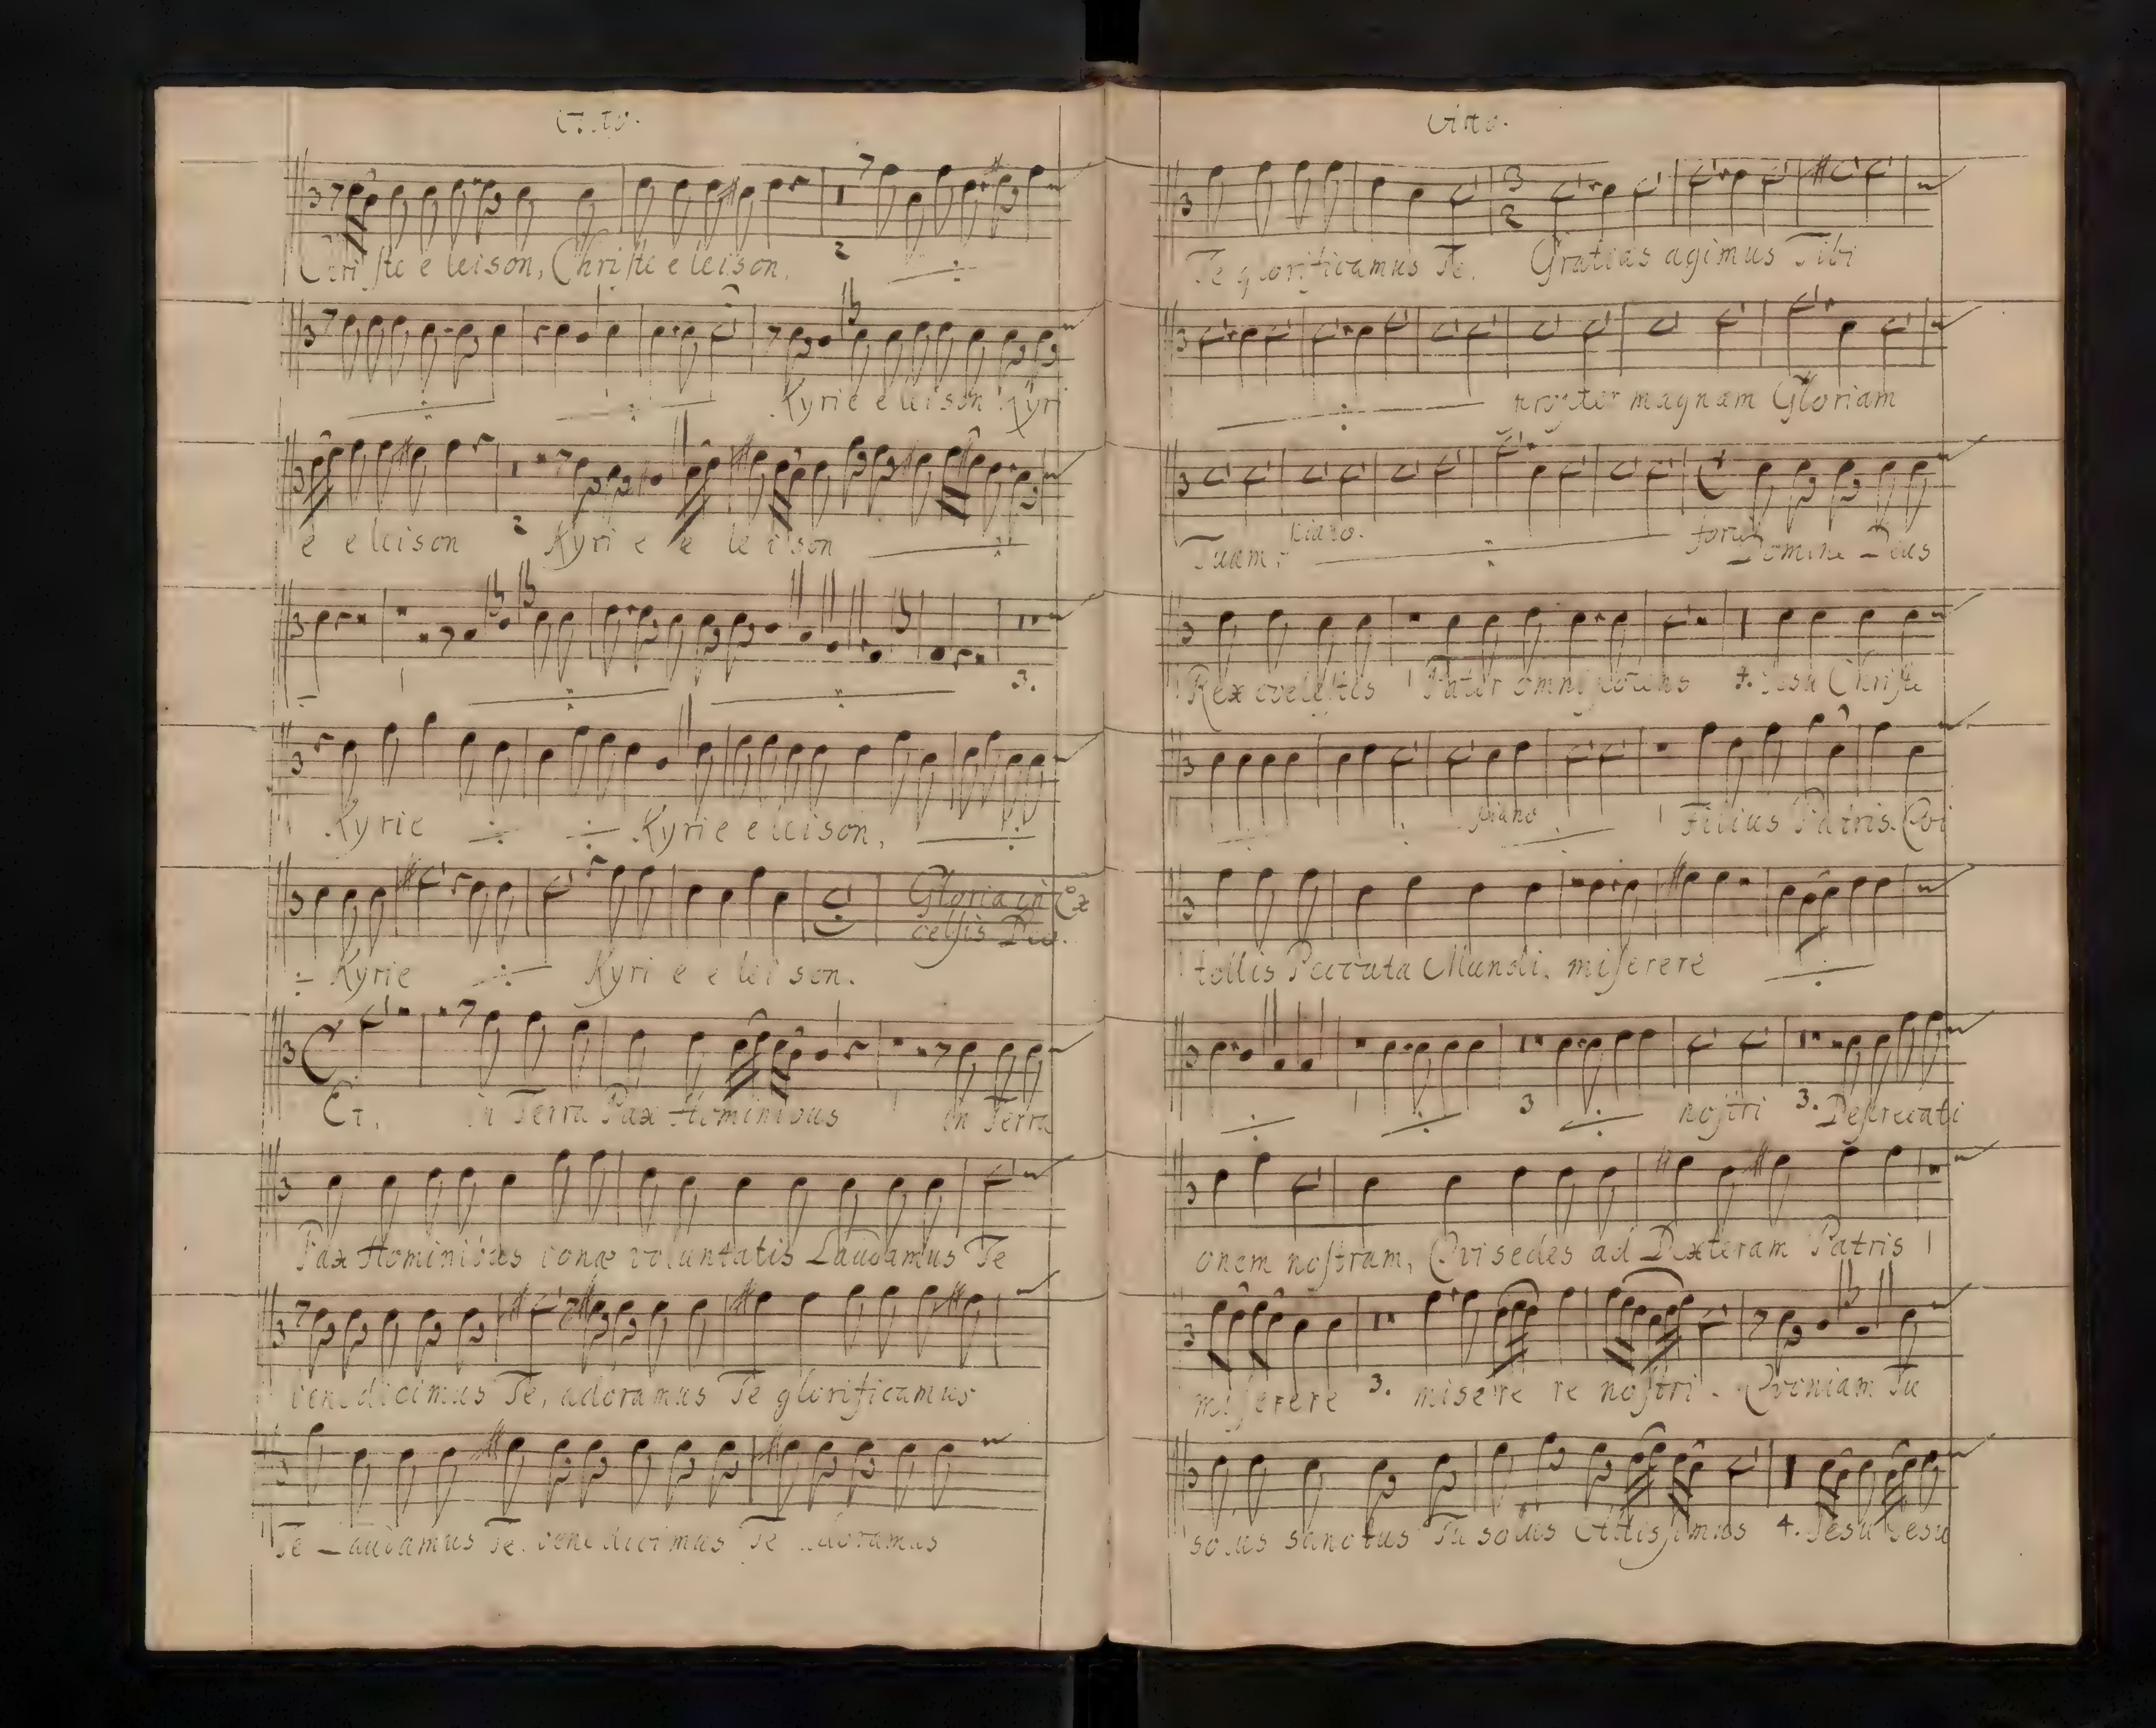 Christe eleison, Christe eleison.
2
Kyrie eleison Kyri
e eleison Kyri e e le i son
2
3.
Kyrie Kyrie eleison,
Gloria in Ex
celsis Deo.
Kyrie Kyri e e lei son.
Et in Terra Pax Hominibus in Terra
Pax Hominibus bonæ voluntatis Laudamus Te
benedicimus Te, adoramus Te glorificamus
Te Laudamus Te. benedicimus Te adoramus
Alto.
3
2
Te glorificamus Te. Gratias agimus Tibi
propter magnam Gloriam
Tuam, piano. Domine Deus
Rex coelestis 1 Pater omnipotens 4. Jesu Christe
piano 1 Filius Patris. Qvi
tollis Peccata Mundi. miserere
1 3 nostri 3. Deprecati
onem nostram, Qvi sedes ad Dexteram Patris 1
miserere 3. misere re nostri. Qvoniam Tu
solus sanctus Tu solus Altissimus 4. Jesu Jesu